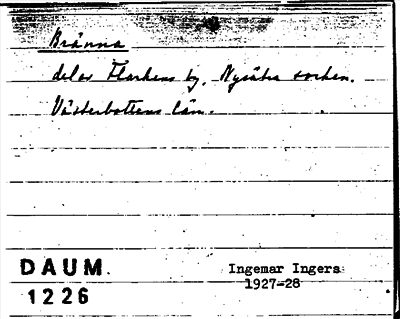 Bränna
del av Flarkens by. Nysätra socken.
Västerbottens län.
DAUM.
1226
Ingemar Ingers
1927-28